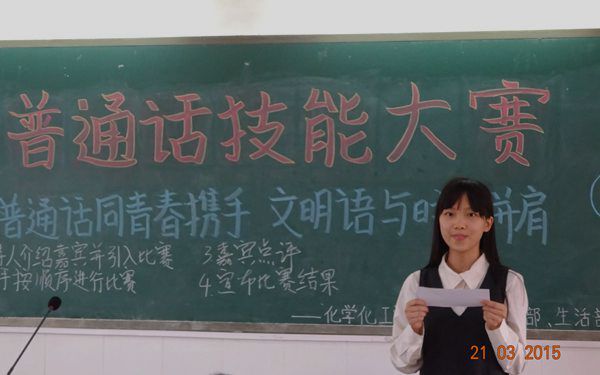 普通话技能大赛
普通话同青春携手 文明语与时 并肩
人介绍嘉宾并引入比赛 3.嘉宾点评
手按顺序进行比赛 4.宣布比赛结果
——化学化工 部、生活部
21 03 2015